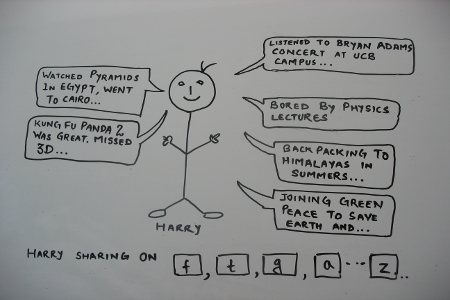 WATCHED PYRAMIDS
IN EGYPT, WENT
TO CAIRO...
KUNG FU PANDA 2
WAS GREAT. MISSED
3D...
LISTENED TO BRYAN ADAMS
CONCERT AT UCB
CAMPUS...
BORED BY PHYSICS
LECTURES
BACKPACKING TO
HIMALAYAS IN
SUMMERS...
JOINING GREEN
PEACE TO SAVE
EARTH AND...
HARRY
HARRY SHARING ON f, t, g, a --- z..